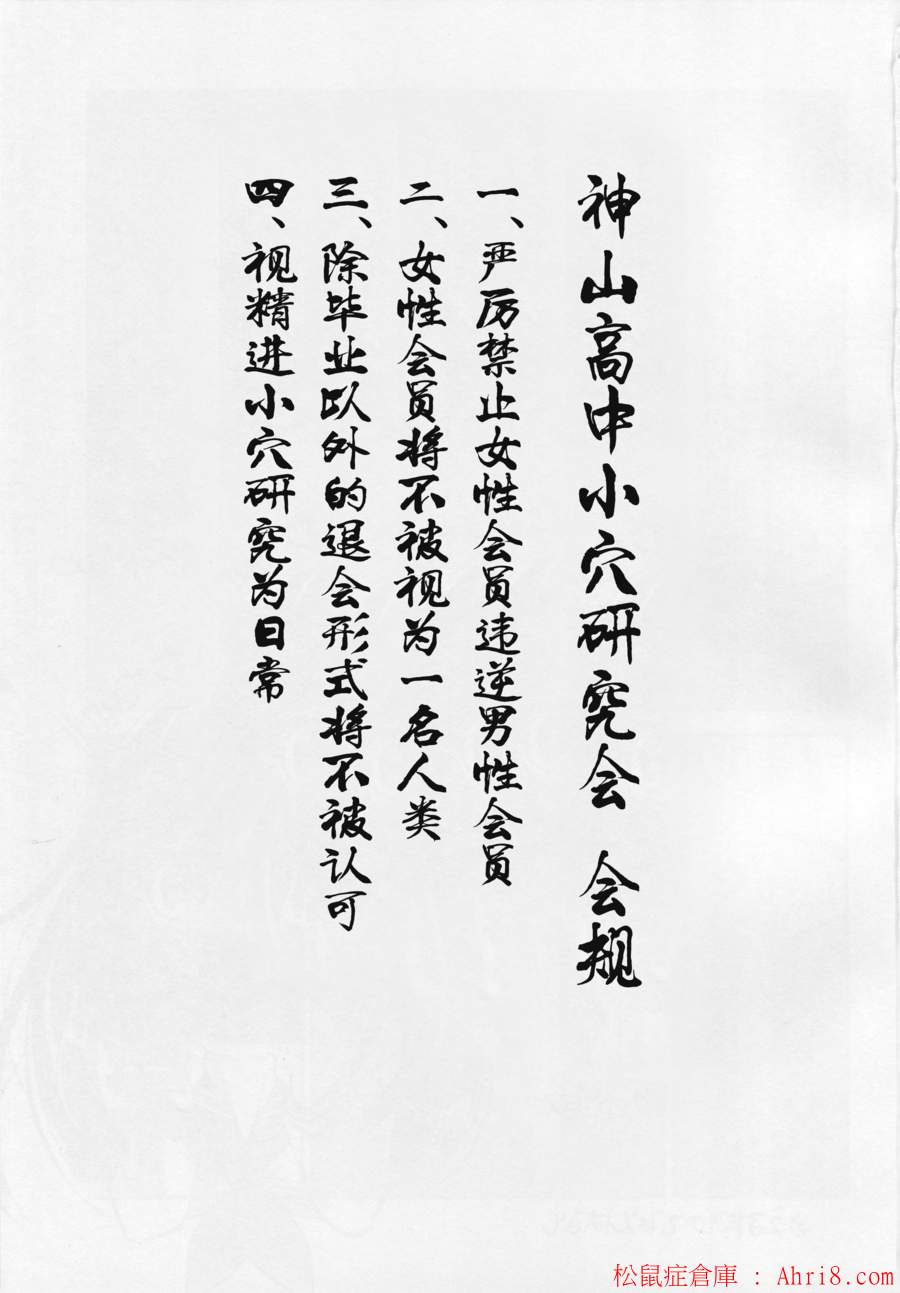 神山高中小穴研究会 会规
一、严厉禁止女性会员违逆男性会员
二、女性会员将不被视为一名人类
三、除毕业以外的退会形式将不被认可
四、视精进小穴研究为日常
松鼠症倉庫 : Ahri8.com